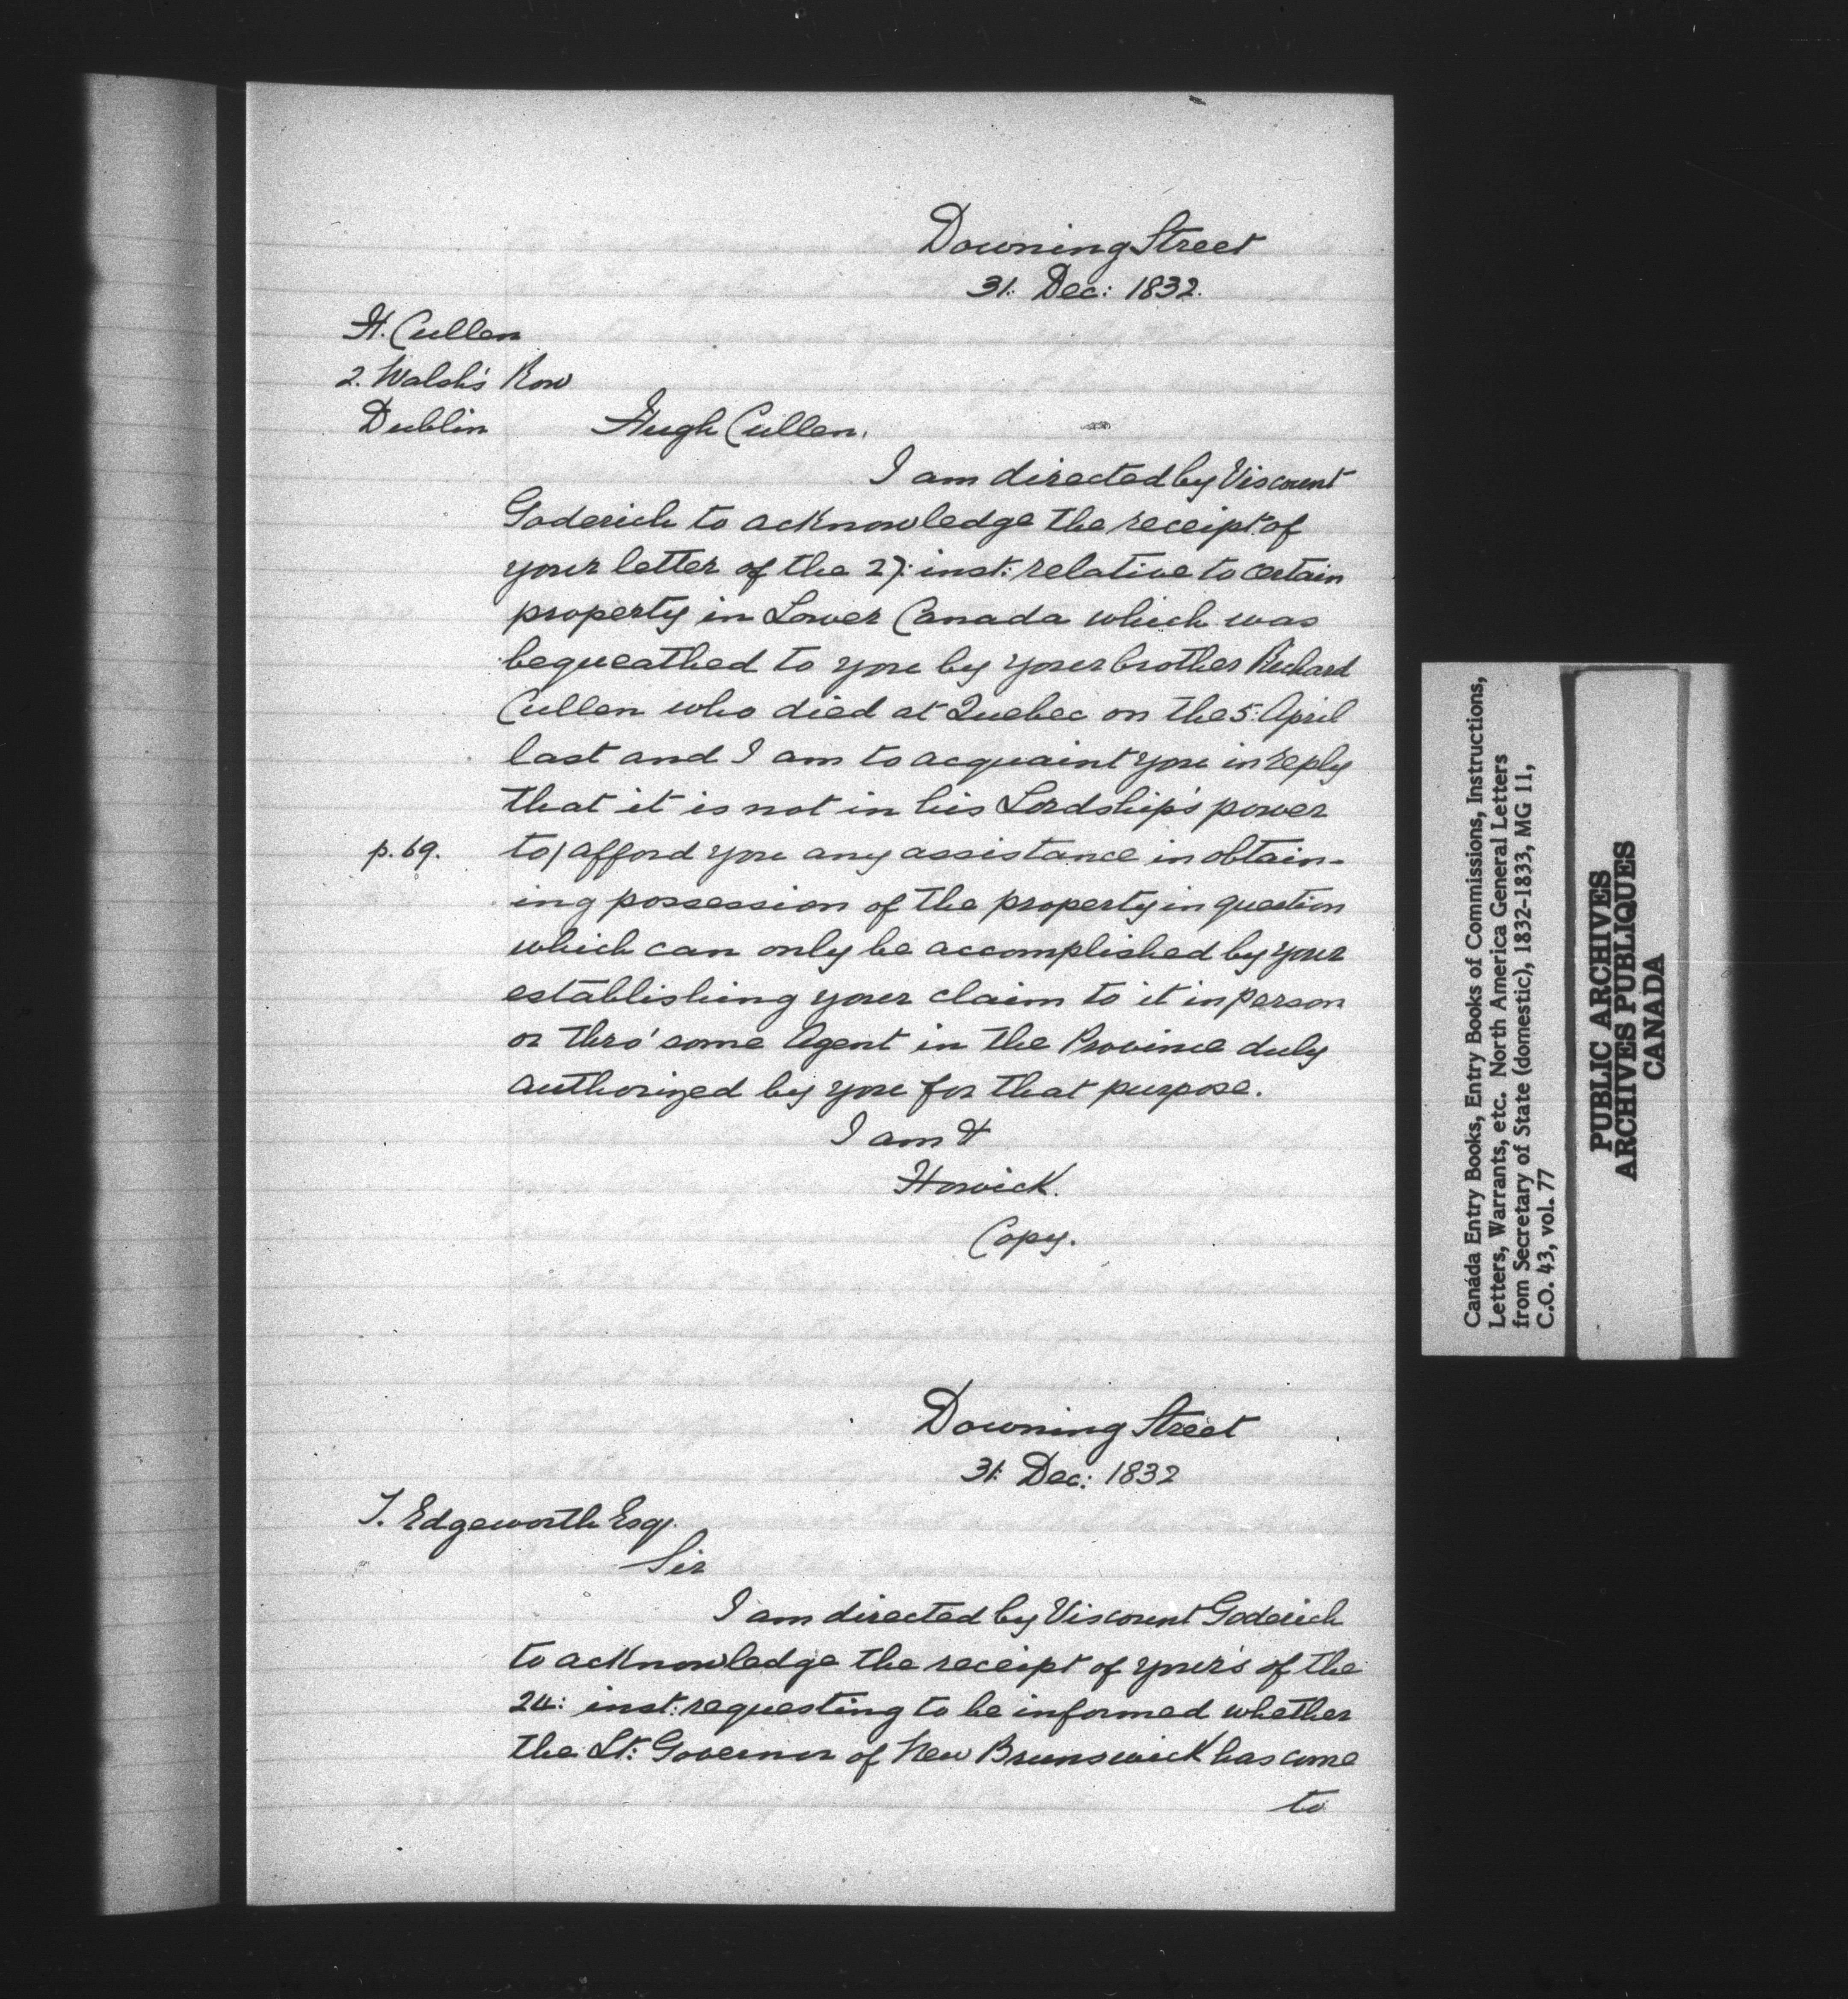 Downing Street
31: Dec: 1832.
H. Cullen
2. Walsh's Row
Dublin
Hugh Cullen,
I am directed by Viscount
Goderich to acknowledge the receipt of
your letter of the 27: inst: relative to certain
property in Lower Canada which was
bequeathed to you by your brother Richard
Cullen who died at Quebec on the 5: April
last and I am to acquaint you in reply
that it is not in his Lordship's power
p. 69. to/ afford you any assistance in obtain-
ing possession of the property in question
which can only be accomplished by your
establishing your claim to it in person
or thro' some Agent in the Province duly
authorized by you for that purpose.
I am &
Howick.
Copy.
Downing Street
31: Dec: 1832
T. Edgeworth Esqr.
Sir
I am directed by Viscount Goderich
to acknowledge the receipt of your's of the
24: inst: requesting to be informed whether
the Lt: Governor of New Brunswick has come
to
Canada Entry Books, Entry Books of Commissions, Instructions,
Letters, Warrants, etc. North America General Letters
from Secretary of State (domestic), 1832-1833, MG 11,
C.O. 43, vol. 77
PUBLIC ARCHIVES
ARCHIVES PUBLIQUES
CANADA